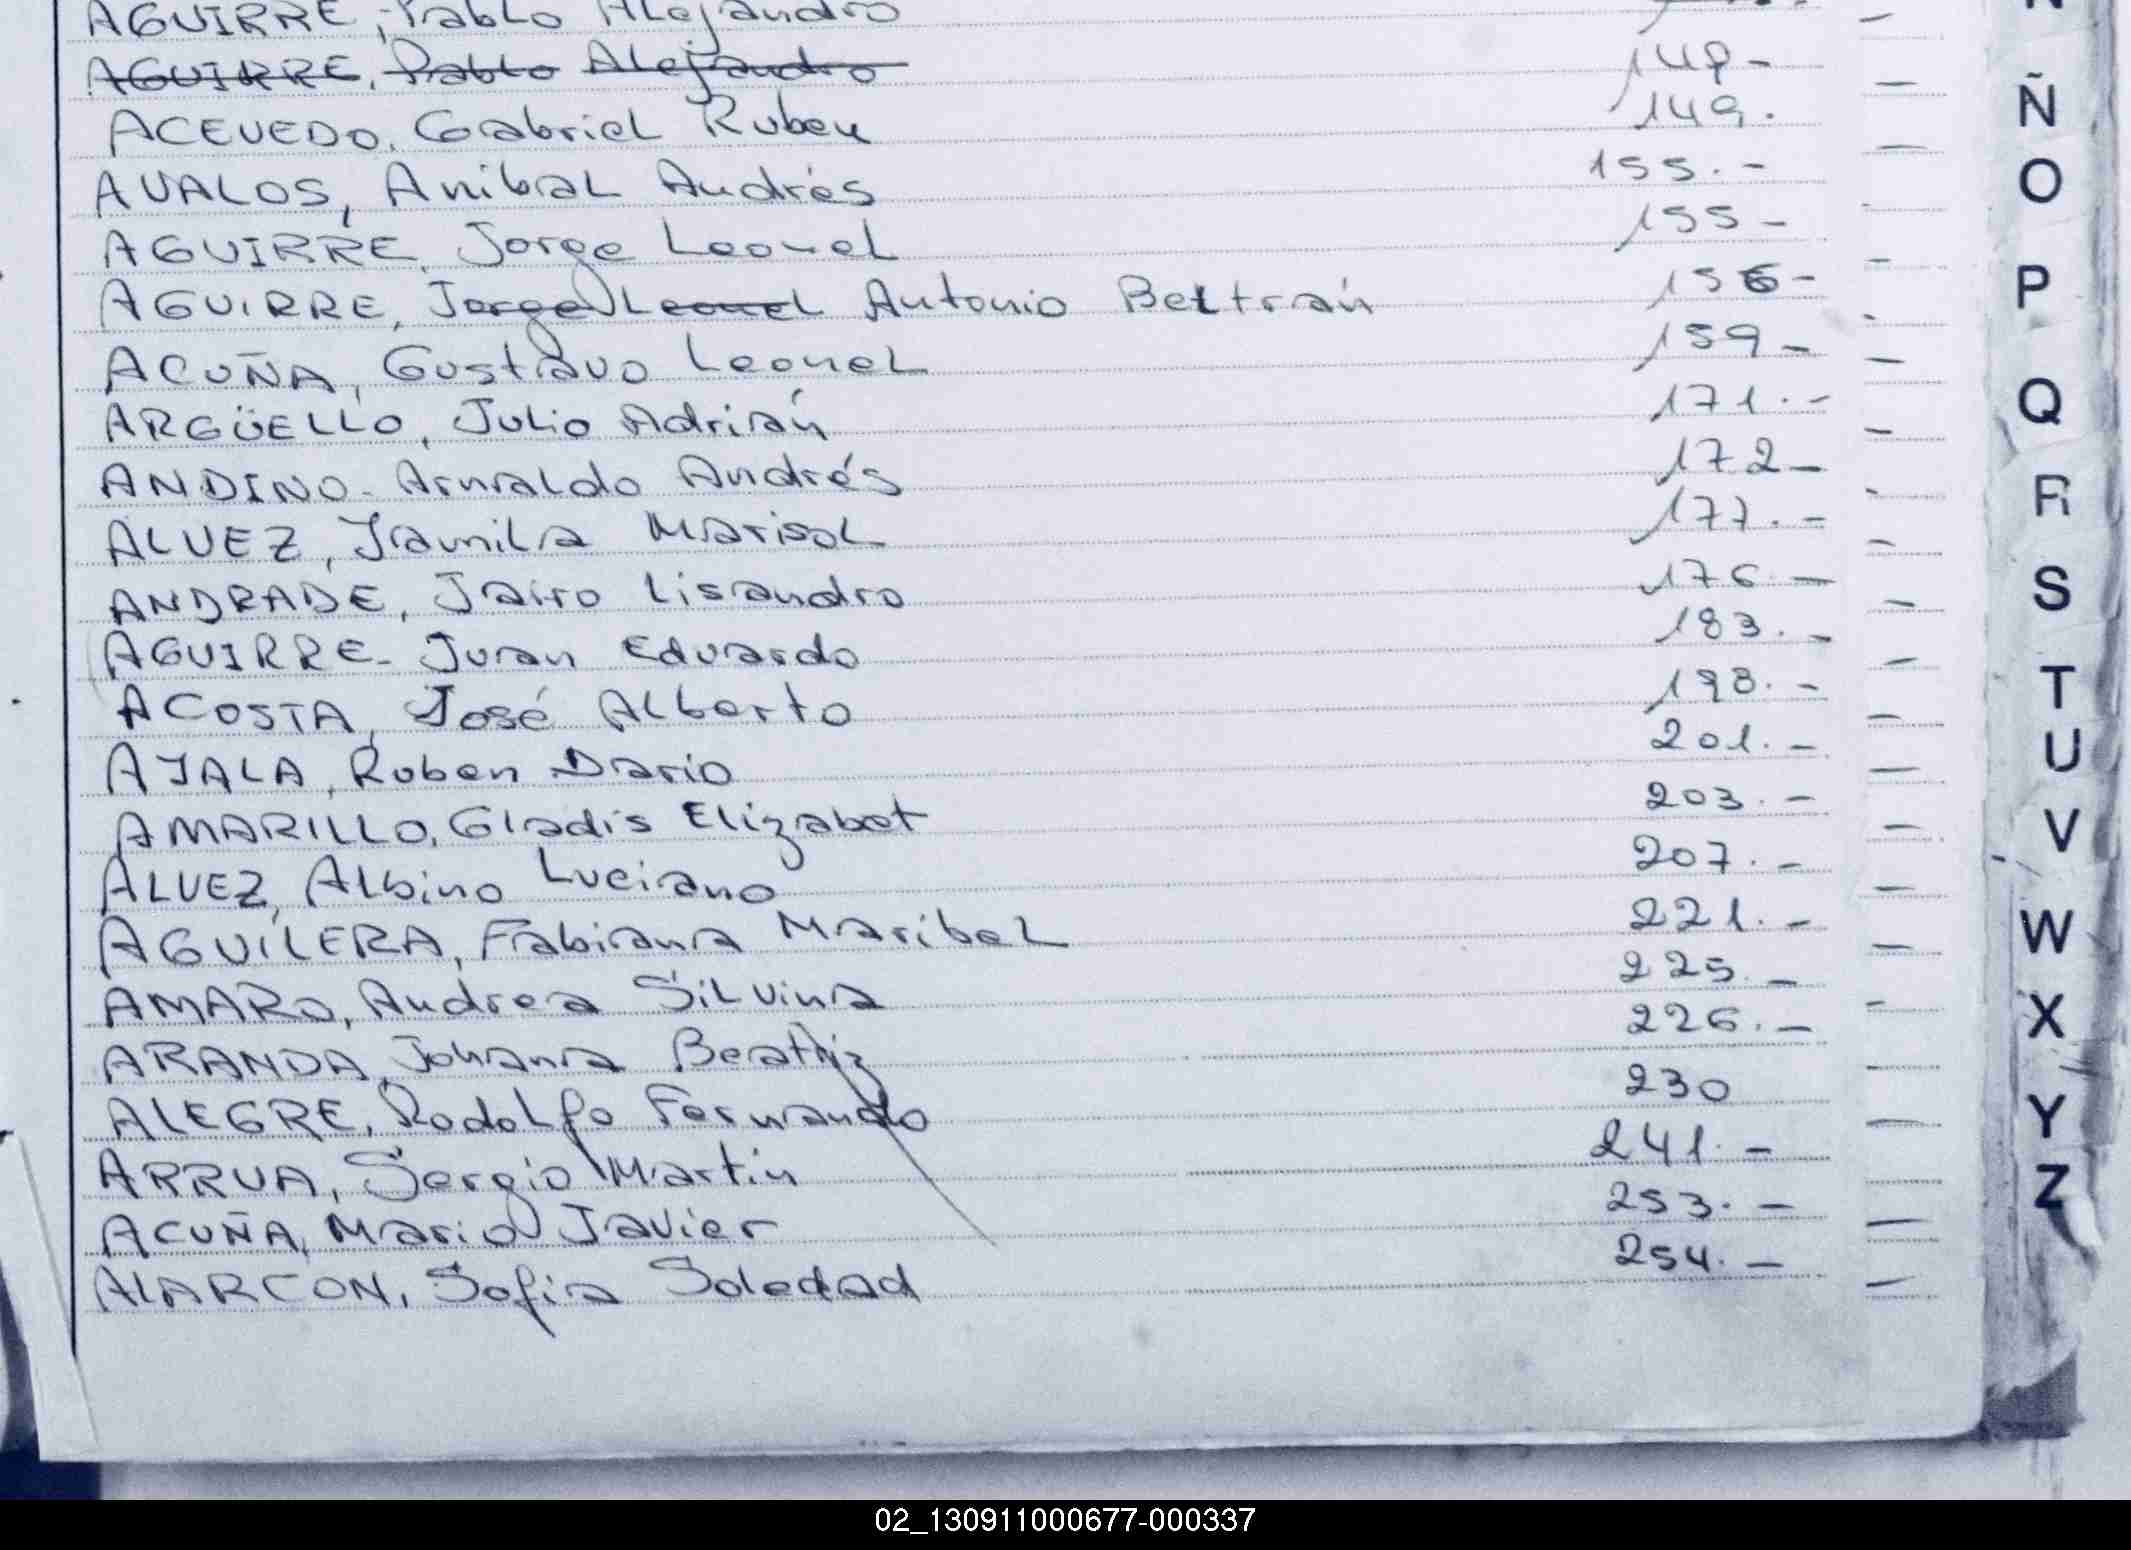 AGUIRRE, Pablo Alejandro
AGUIRRE, Pablo Alejandro 148-
ACEVEDO, Gabriel Ruben 149.
AVALOS, Anibal Andrés 155.-
AGUIRRE, Jorge Leonel 155-
AGUIRRE, Jorge Leonel Antonio Beltrán 156-
ACUÑA, Gustavo Leonel 159-
ARGÜELLO, Julio Adrián 171.-
ANDINO- Arnaldo Andrés 172-
ALVEZ, Jamila Marisol 177.-
ANDRADE, Jairo Lisandro 176-
AGUIRRE- Juan Eduardo 183.-
ACOSTA, José Alberto 198.-
AJALA, Ruben Dario 201.-
AMARILLO, Gladis Elizabet 203.-
ALVEZ, Albino Luciano 207.-
AGUILERA, Fabiana Maribel 221.-
AMARO, Andrea Silvina 225.-
ARANDA, Johana Beatriz 226.-
ALEGRE, Rodolfo Fernando 230
ARRUA, Sergio Martin 241.-
ACUÑA, Mario Javier 253.-
ALARCON, Sofia Soledad 254.-
Ñ
O
P
Q
R
S
T
U
V
W
X
Y
Z
02_130911000677-000337